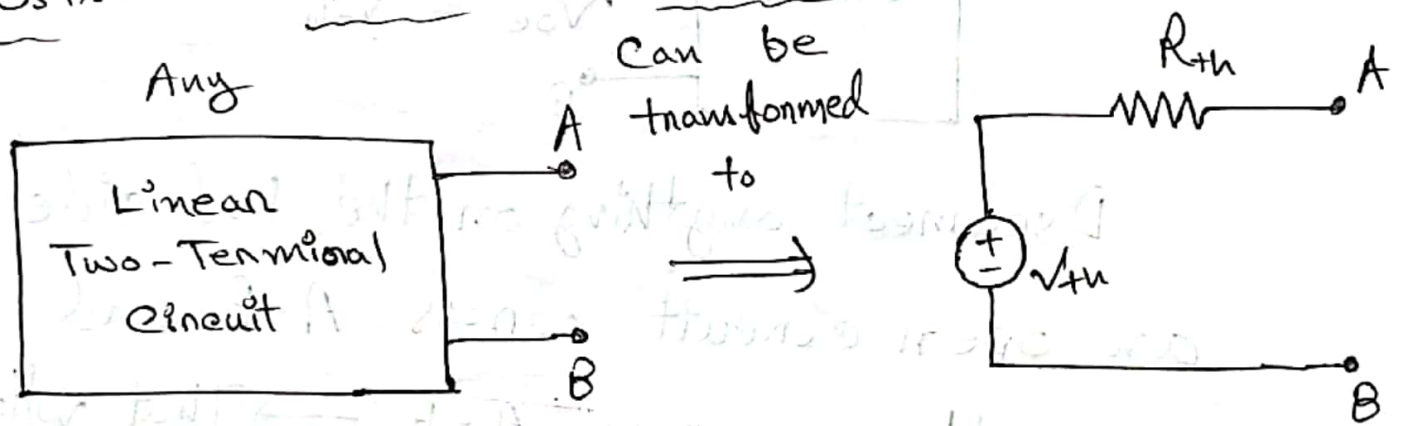 Any
Linear
Two-Terminal
Circuit
A
B
Can be
transformed
to
Rth
A
+
-
Vth
B